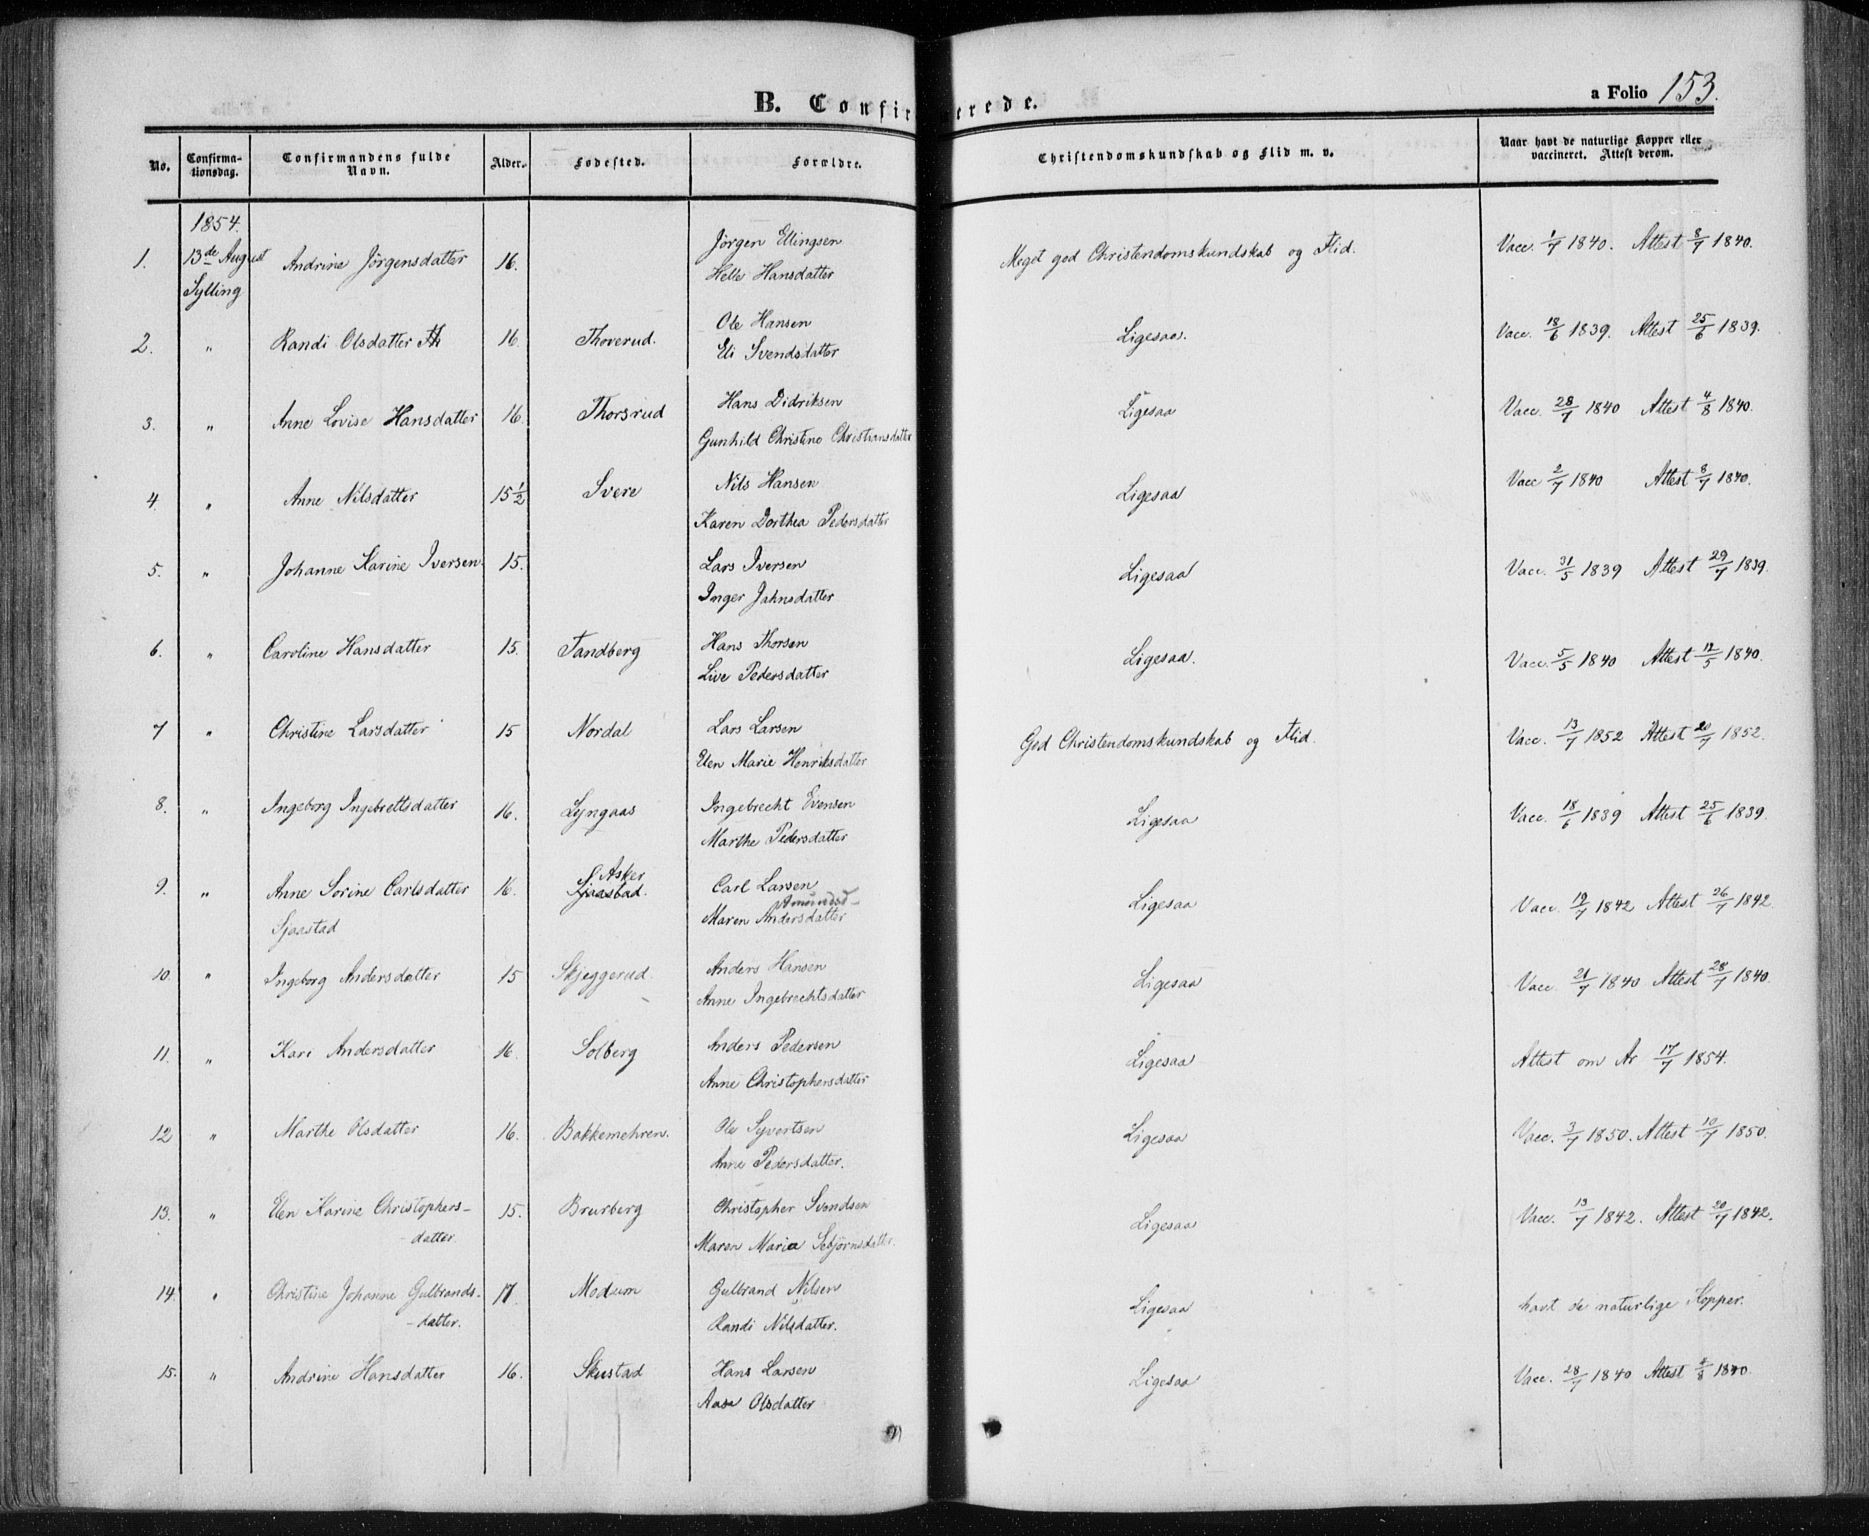 B. Confirmerede.
a Folio 153.
No. Confirmationsdag. Confirmandens fulde Navn. Alder. Fødested. Forældre. Christendomskundskab og Flid m. v. Naar havt de naturlige Kopper eller vaccineret. Attest derom.
1854.
1. 13de August Sylling Andrine Jörgensdatter 16. Jörgen Ellingsen Helle Hansdatter Meget god Christendomskundskab og Flid. Vacc. 1/7 1840. Attest 8/7 1840.
2. " Randi Olsdatter Th 16 Thoverud. Ole Hansen Eli Svendsdatter Ligesaa. Vacc. 18/6 1839. Attest 25/6 1839.
3. " Anne Lovise Hansdatter 16. Thorsrud Hans Didriksen Gunhild Christine Christiansdatter Ligesaa Vacc. 28/7 1840 Attest 4/8 1840.
4. " Anne Nilsdatter 15½ Svere Nils Hansen Karen Dorthea Pedersdatter Ligesaa Vacc 2/7 1840 Attest 8/7 1840.
5. " Johanne Karine Iversen 15. Lars Iversen Inger Jahnsdatter Ligesaa Vacc. 31/5 1839 Attest 29/7 1839.
6. " Caroline Hansdatter 15. Tandberg Hans Thorsen Live Pedersdatter Ligesaa. Vacc. 5/5 1840 Attest 12/5 1840.
7 " Christine Larsdatter 15 Nordal Lars Larsen Elen Marie Henriksdatter God Christendomskundskab og Flid. Vacc. 13/7 1852 Attest 20/7 1852.
8. " Ingeborg Ingebrettsdatter 16. Lyngaas Ingebrecht Evensen Marthe Pedersdatter Ligesaa Vacc. 18/6 1839 Attest 25/6 1839.
9. " Anne Sorine Carlsdatter Sjaastad 16. Asker Sjaastad. Carl Larsen Maren Andersdatter Amundsd- Ligesaa Vacc. 19/7 1842 Attest 26/7 1842.
10. " Ingeborg Andersdatter 15 Skjeggerud. Anders Hansen Anne Ingebrechtsdatter Ligesaa Vacc. 21/7 1840 Attest 28/7 1840.
11. " Kari Andersdatter 16. Solberg Anders Pedersen Anne Christophersdatter Ligesaa Attest om Ar 17/7 1854.
12 " Marthe Olsdatter 16. Bakkemehren. Ole Syvertsen Anne Pedersdatter. Ligesaa Vacc. 3/7 1850. Attest 10/7 1850.
13. " Elen Karine Christophers-datter 15. Brurberg Christopher Svendsen Maren Maria Sebjørnsdatter Ligesaa Vacc. 13/7 1842. Attest 20/7 1842.
14. " Christine Johanne Gulbrands-datter. 17. Modum Gulbrand Nilsen Randi Nilsdatter. Ligesaa havt de naturlige Kopper.
15. " Andrine Hansdatter 16. Skustad Hans Larsen Aase Olsdatter Ligesaa Vacc. 28/7 1840 Attest 4/8 1840.